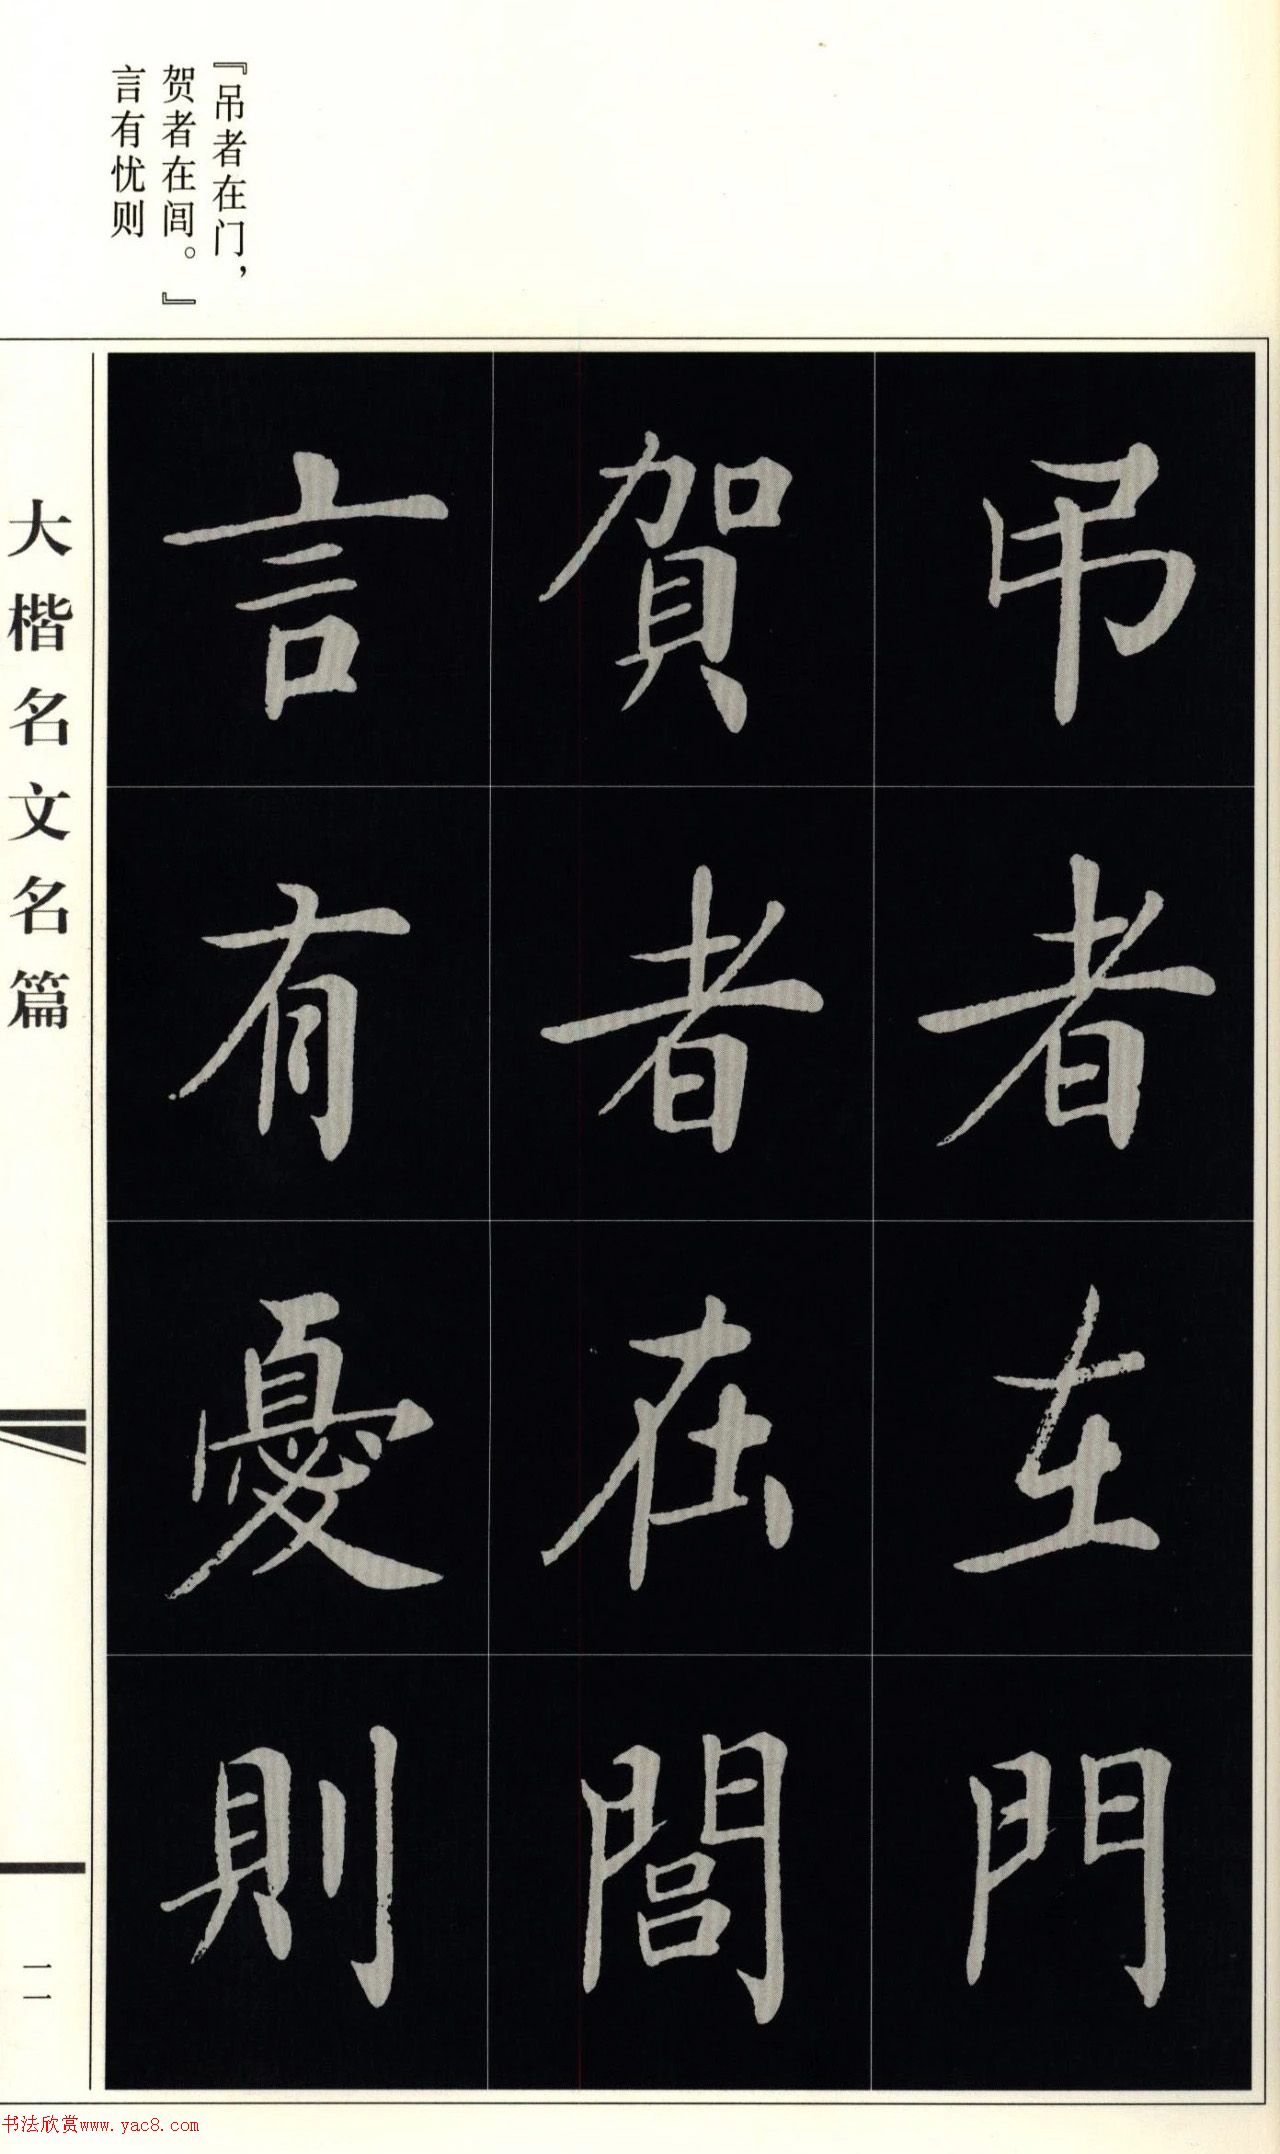 『吊者在门，
贺者在闾。』
言有忧则
吊者在門
賀者在閭
言有憂則
大楷名文名篇
一一
书法欣赏www.yac8.com